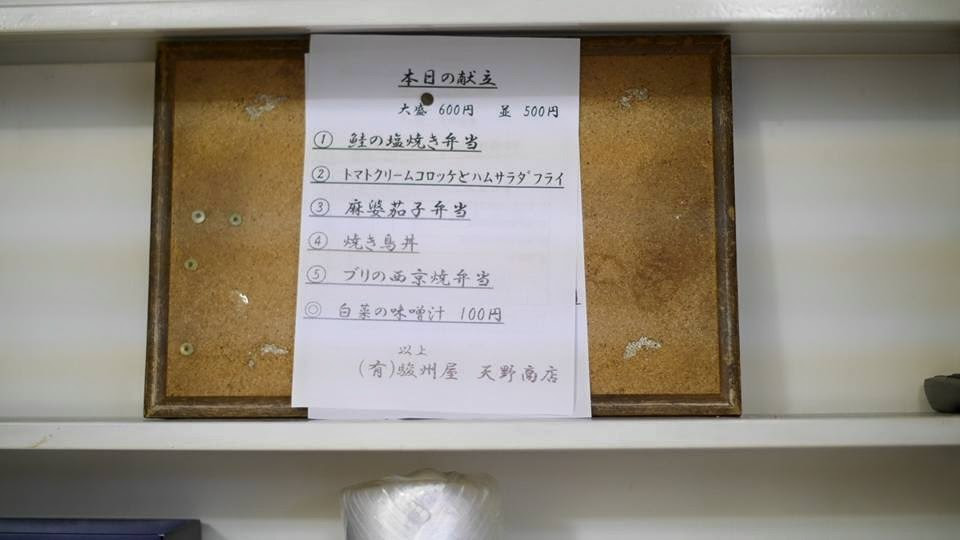 本日の献立
大盛 600円 並 500円
① 鮭の塩焼き弁当
② トマトクリームコロッケとハムサラダフライ
③ 麻婆茄子弁当
④ 焼き鳥丼
⑤ ブリの西京焼弁当
◎ 白菜の味噌汁 100円
以上
(有)駿州屋 天野商店